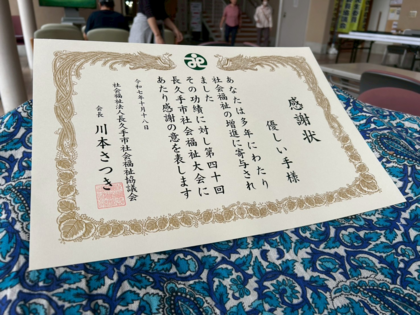 感謝状
優しい手様
あなたは多年にわたり
社会福祉の増進に寄与され
ました、その功績に対し第四十回
長久手市社会福祉大会に
あたり感謝の意を表します
令和七年十月十八日
社会福祉法人長久手市社会福祉協議会
会長 川本さつき